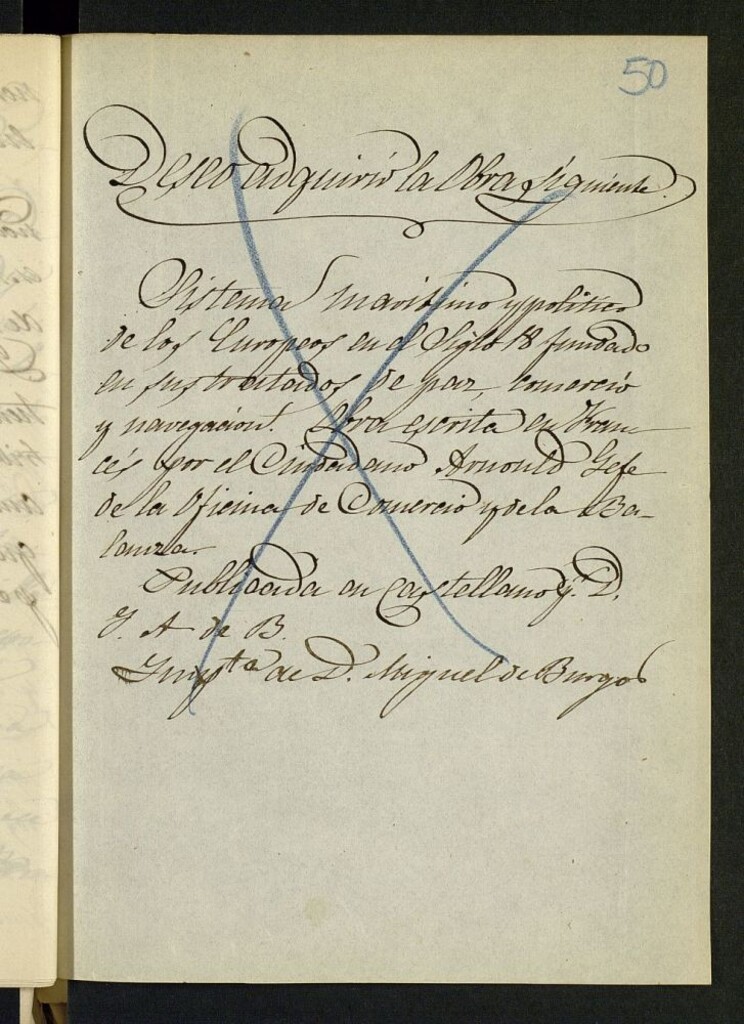 50
Deseo adquirir la Obra siguiente.
Sistema maritimo y politico
de los Europeos en el Siglo 18 fundado
en sus tratados de paz, comercio
y navegacion. Obra escrita en Fran-
cés por el Ciudadano Arnould Gefe
de la Oficina de Comercio y de la Ba-
lanza.
Publicada en Castellano pr. D.
J. A de B.
Impta de D. Miguel de Burgos